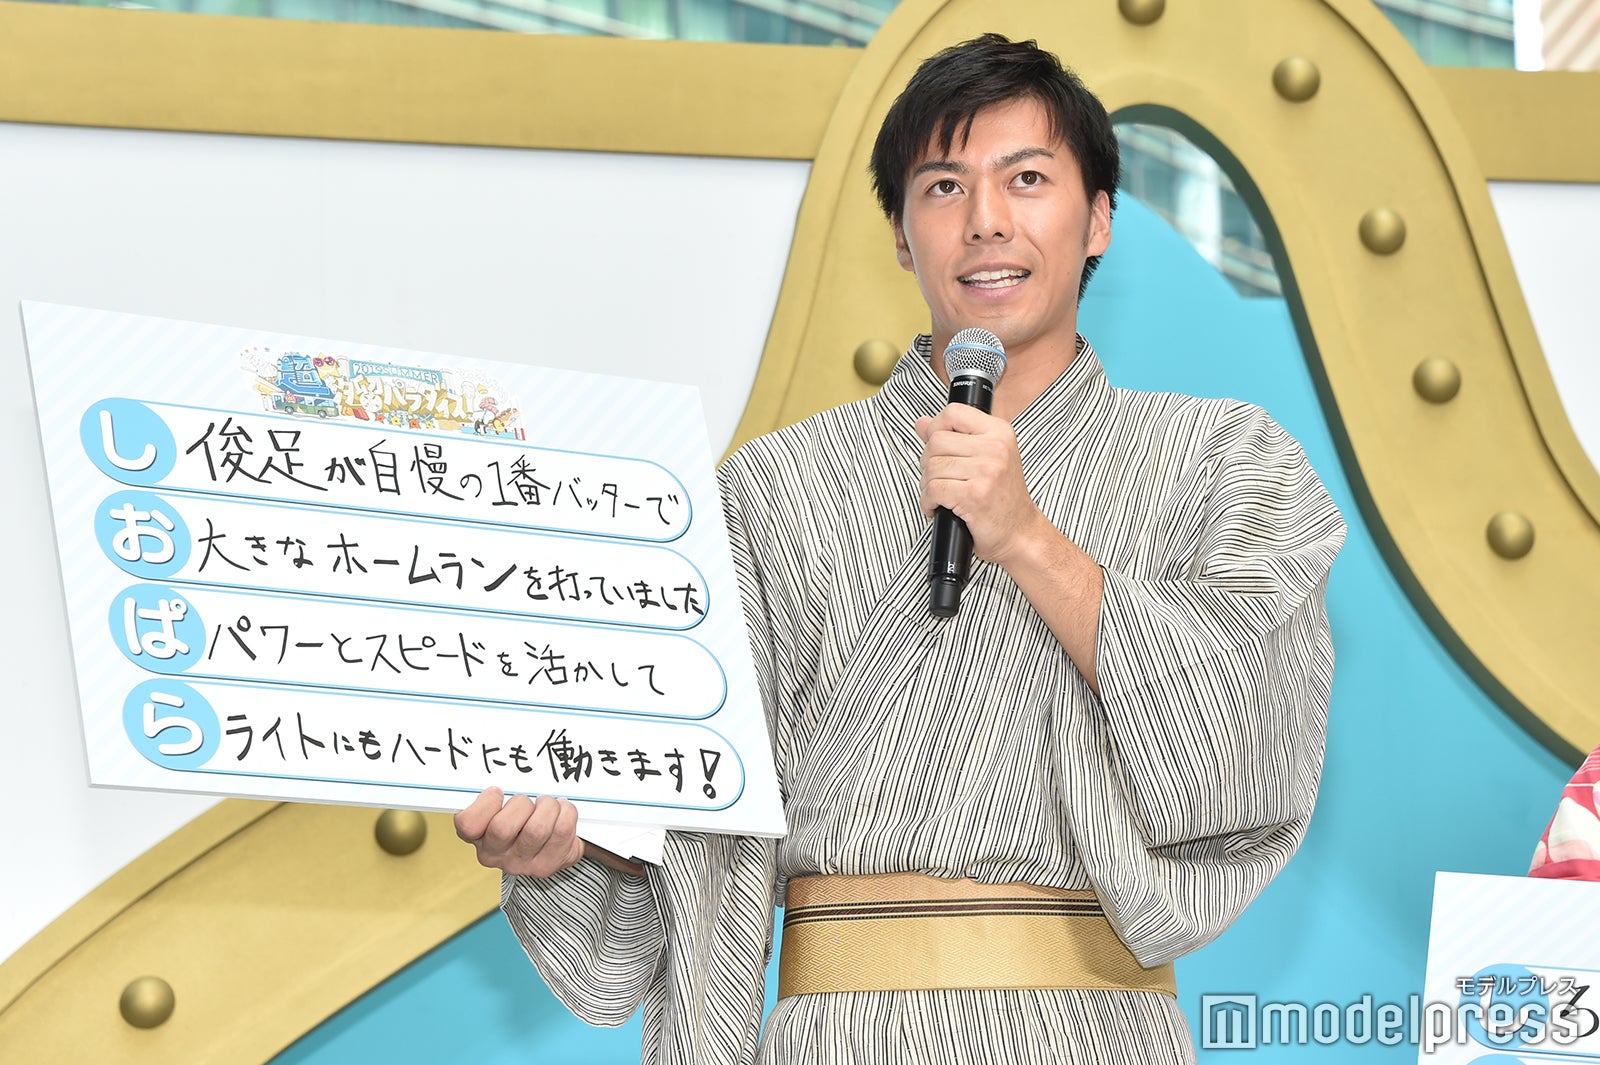 2019 SUMMER
パラダイス
し 俊足が自慢の1番バッターで
お 大きなホームランを打っていました
ぱ パワーとスピードを活かして
ら ライトにもハードにも働きます!
SHURE
モデルプレス
modelpress